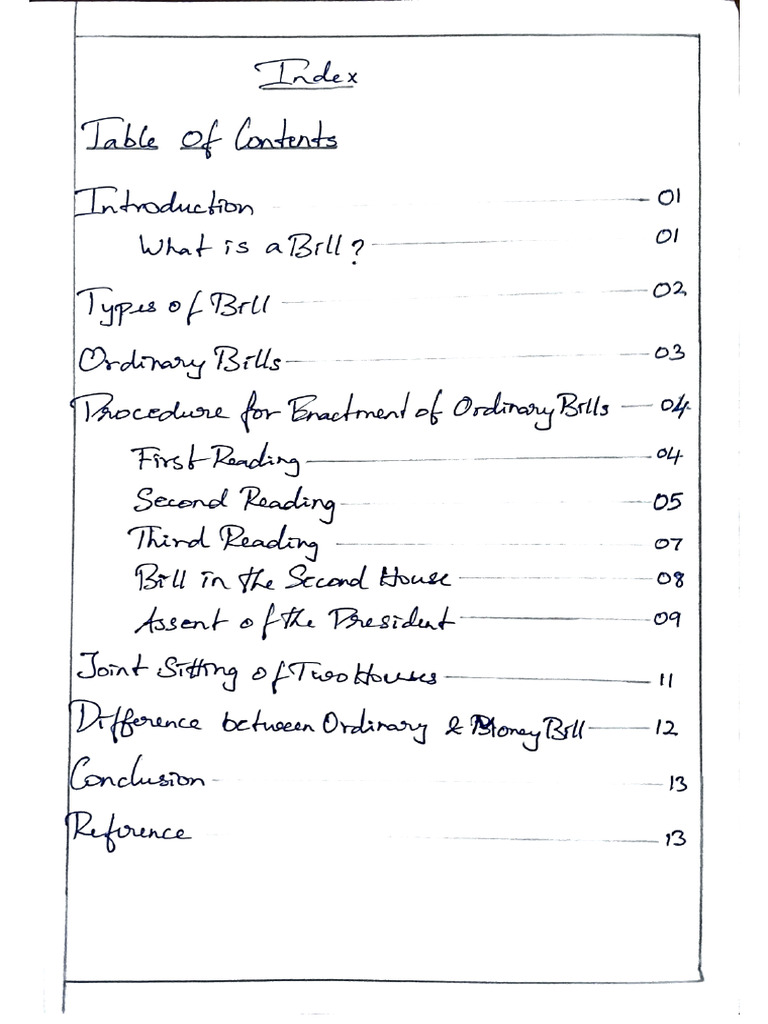 Index
Table of Contents
Introduction 01
What is a Bill? 01
Types of Bill 02
Ordinary Bills 03
Procedure for Enactment of Ordinary Bills 04
First Reading 04
Second Reading 05
Third Reading 07
Bill in the Second House 08
Assent of the President 09
Joint Sitting of Two Houses 11
Difference between Ordinary & Money Bill 12
Conclusion 13
Reference 13